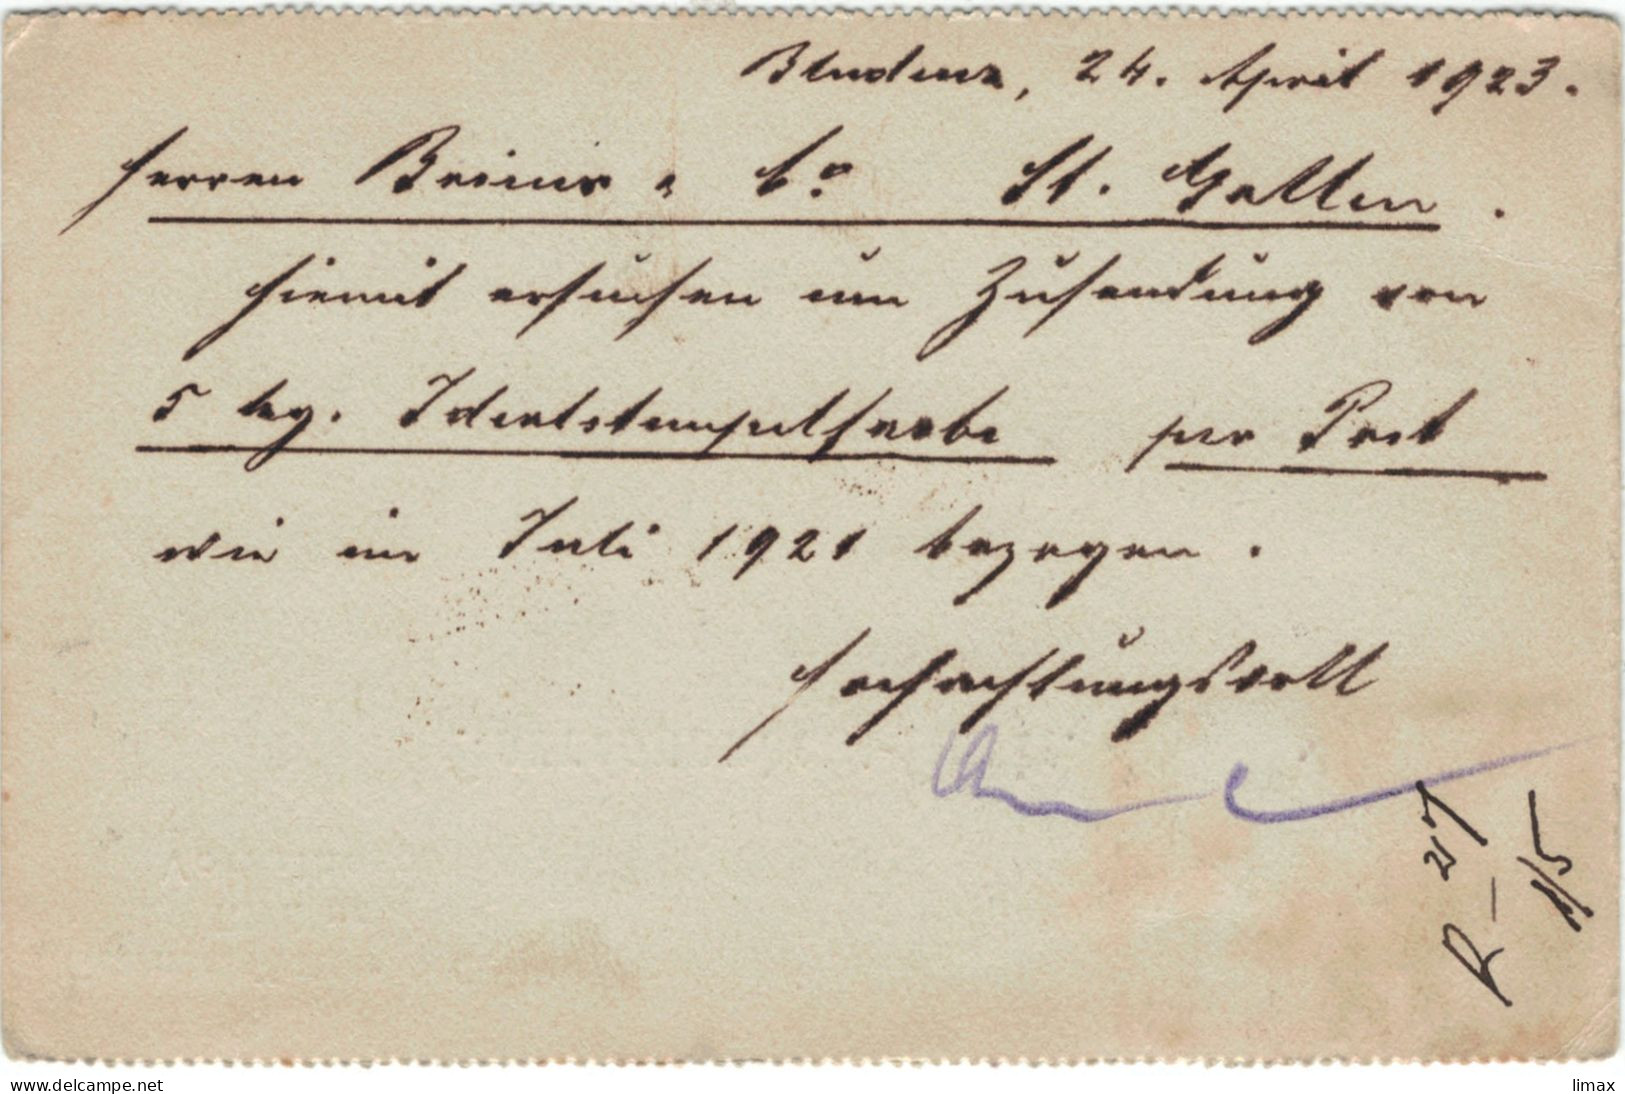 Bludenz, 24. April 1923.
Herren & Co St. Gallen.
Hiemit ersuchen um Zusendung von
5 kg. Idealstempelfarbe per Post
wie im Juli 1921 bezogen.
Hochachtungsvoll
R – 27
1/5
delcampe.net
limax